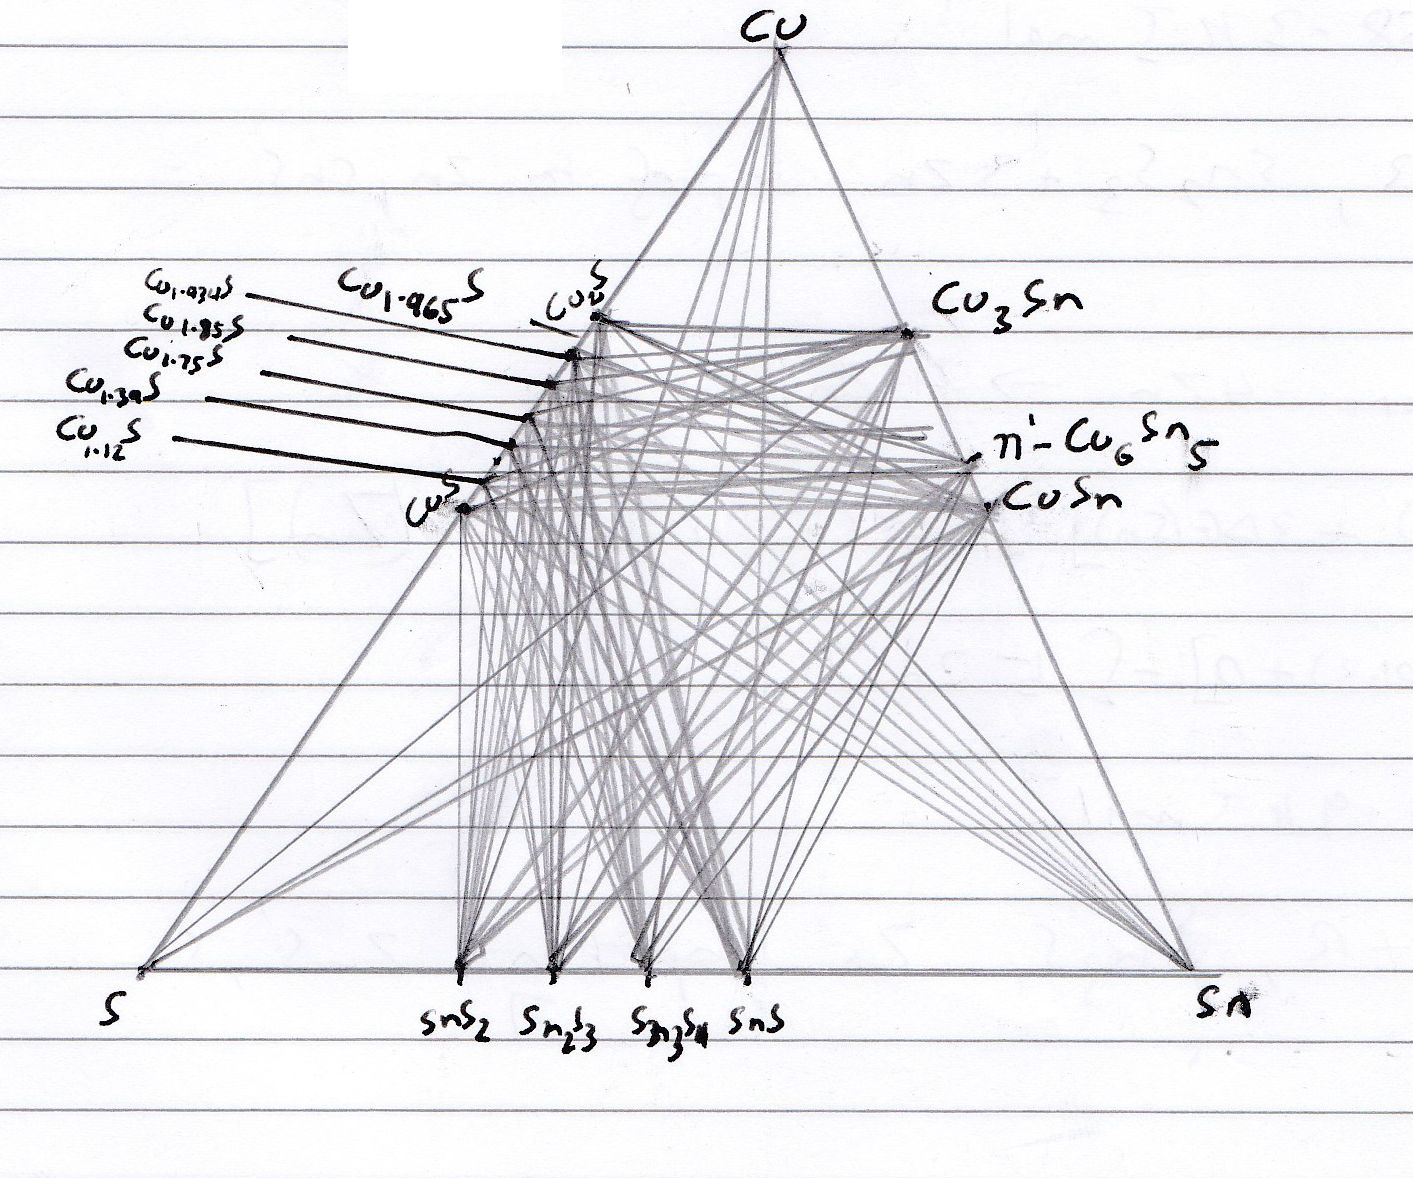 Cu
Cu1.934S
Cu1.965S
Cu2S
Cu3Sn
Cu1.85S
Cu1.75S
Cu1.39S
Cu1.12S
η'-Cu6Sn5
CuS
CuSn
S
SnS2
Sn2S3
Sn3S4
SnS
Sn